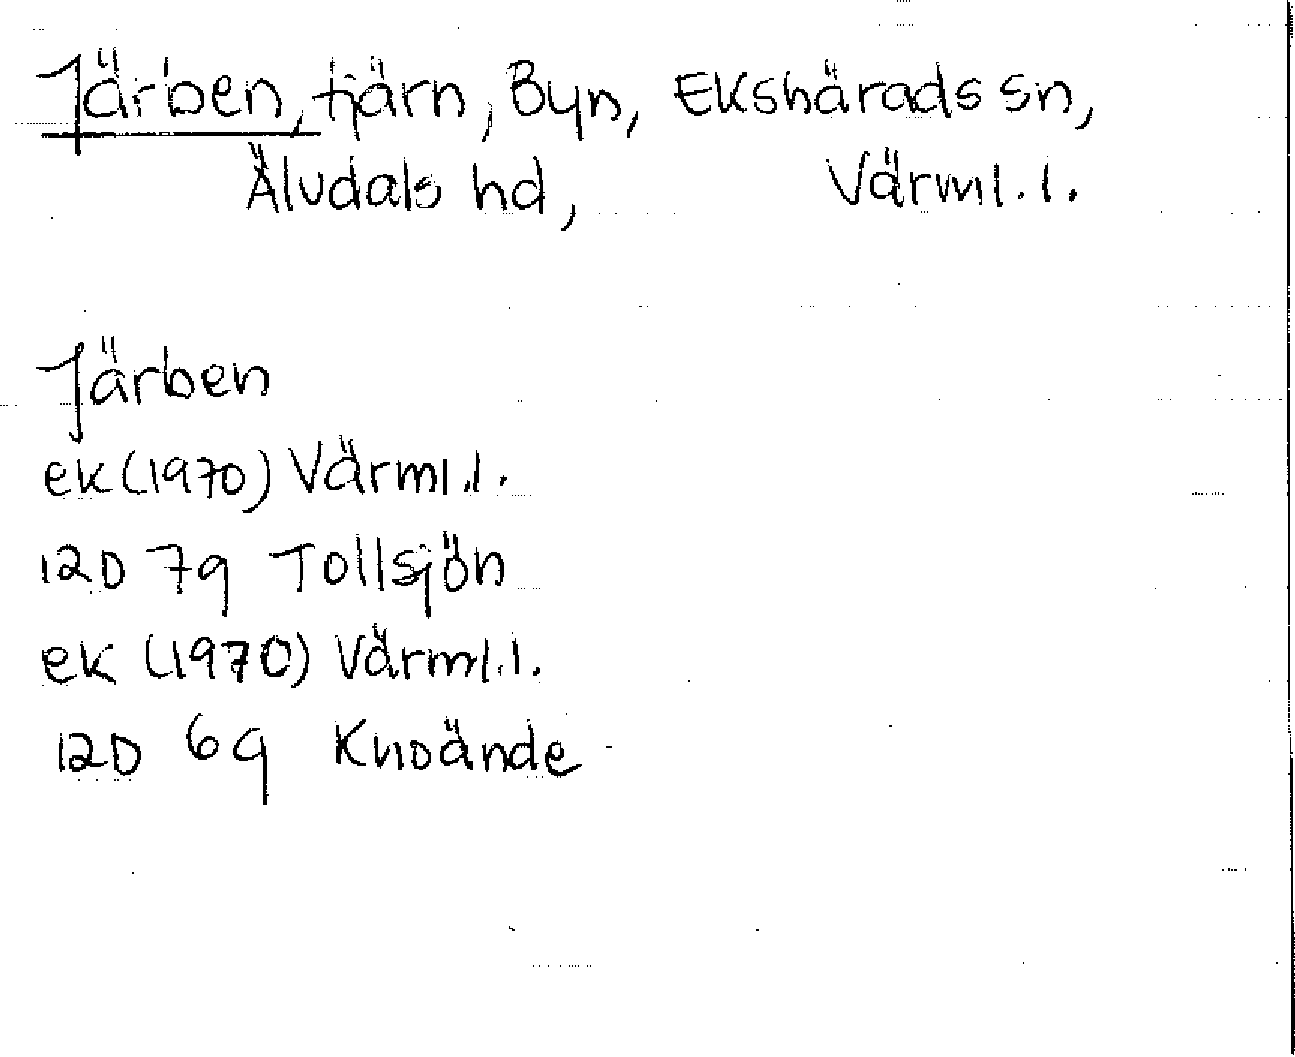 Järben, tjärn, Byn, Ekshärads sn,
Älvdals hd, Värml. l.
Järben
ek (1970) Värml. l.
12D 7g Tollsjön
ek (1970) Värml. l.
12D 6g Knoände